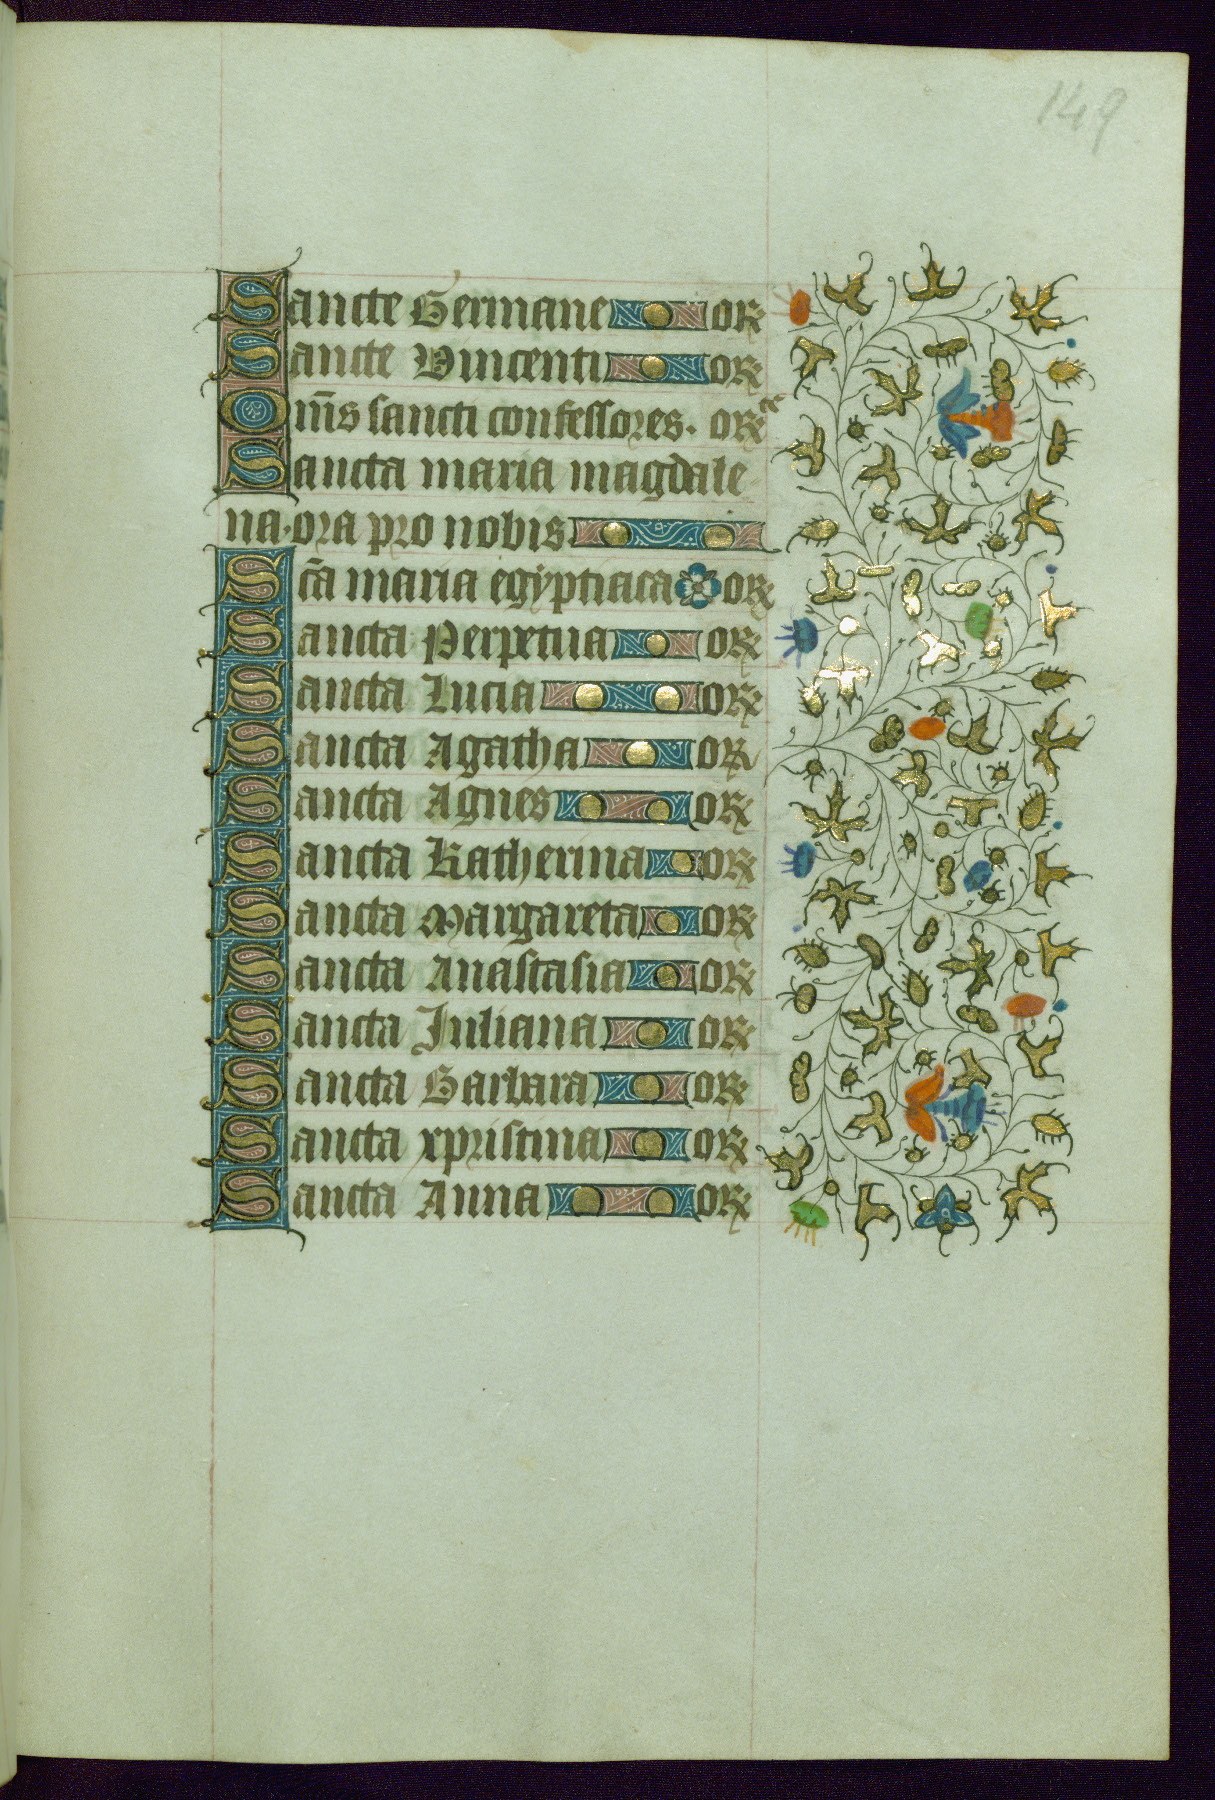 149
Sancte Germane or
Sancte Vincenti or
Om̅s sancti confessores. or
Sancta maria magdale
na. ora pro nobis
Sc̅a maria egyptiaca or
Sancta Perpetua or
Sancta Lucia or
Sancta Agatha or
Sancta Agnes or
Sancta Katherina or
Sancta Margareta or
Sancta Anastasia or
Sancta Iuliana or
Sancta Barbara or
Sancta xpristina or
Sancta Anna or